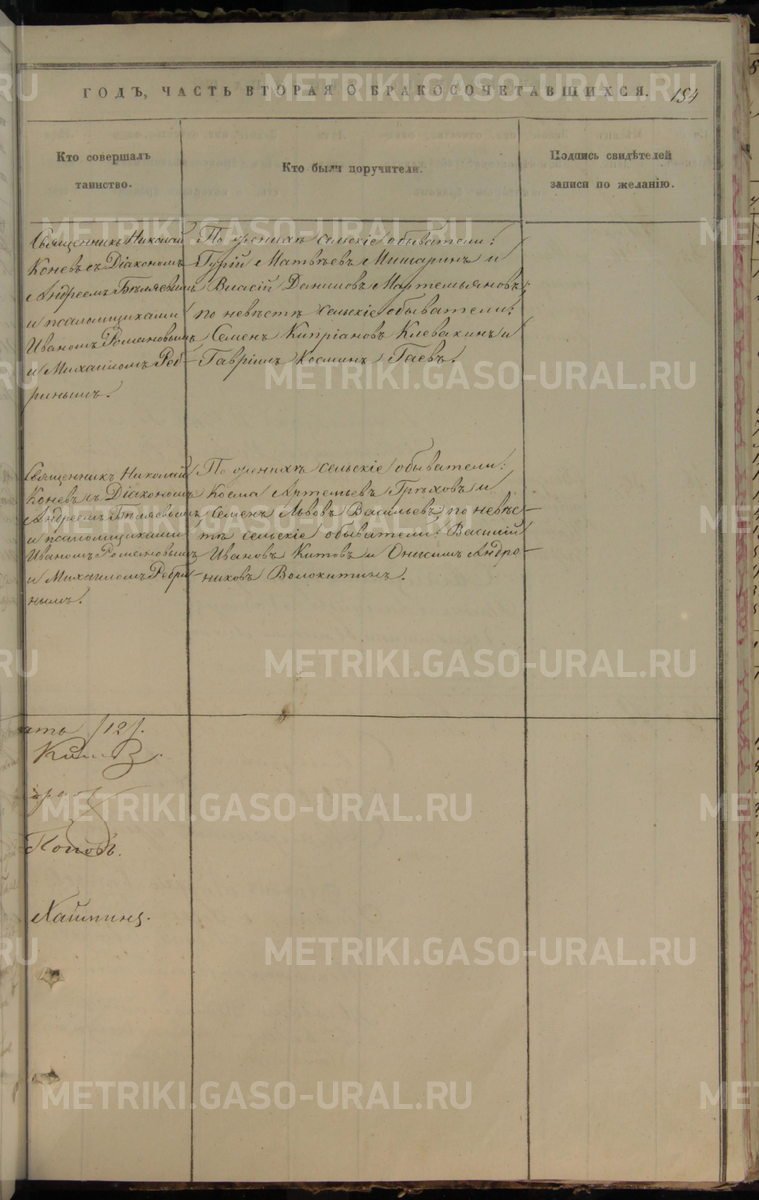 ГОДЪ, ЧАСТЬ ВТОРАЯ О БРАКОСОЧЕТАВШИХСЯ. 154
Кто совершалъ
таинство.
Кто были поручители.
Подпись свидѣтелей
записи по желанію.
Священникъ Николай
Коневъ съ Діакономъ
Андреемъ Бѣляевымъ
и псаломщиками
Иваномъ Романовымъ
и Михаиломъ Реб-
ринымъ.
По женихѣ сельскіе обыватели:
Гурій Матвѣевъ Мишаринъ и
Власій Даниловъ Мартемьяновъ;
по невѣстѣ сельскіе обыватели:
Семенъ Кипріановъ Клевакинъ и
Гавріилъ Косминъ Гаевъ.
Священникъ Николай
Коневъ съ Діакономъ
Андреемъ Бѣляевымъ
и псаломщиками
Иваномъ Романовымъ
и Михаиломъ Ребри-
нымъ.
По женихѣ сельскіе обыватели:
Косма Артемьевъ Грѣховъ и
Семенъ Львовъ Васильевъ, по невѣс-
тѣ сельскіе обыватели: Василій
Ивановъ Китовъ и Онисимъ Андро-
никовъ Волокитинъ.
/12/.
Поповъ.
METRIKI.GASO-URAL.RU